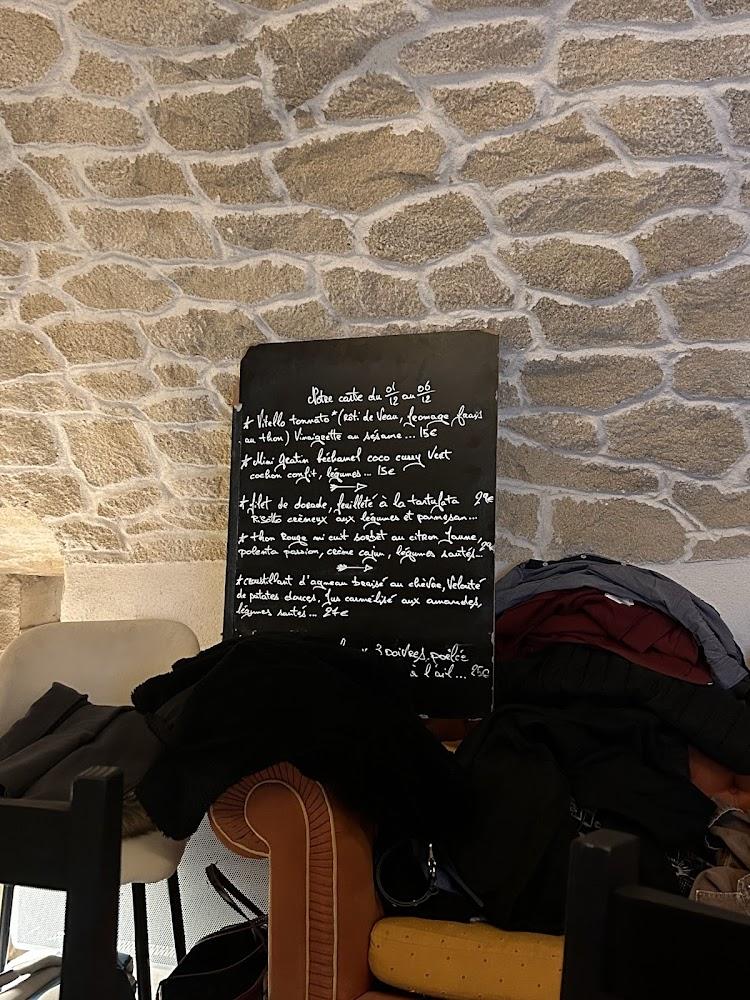 Notre carte du 01/12 au 06/12
* Vitello tonnato* (Rôti de Veau, fromage frais
au thon) Vinaigrette au sésame... 15€
* Mini Gratin béchamel coco curry Vert
cochon confit, légumes... 15€
* filet de dorade, feuilleté à la tartufata
Risotto crèmeux aux légumes et parmesan...
* thon Rouge mi cuit sorbet au citron Jaune,
polenta passion, crème cajun, légumes sautés...
* croustillant d'agneau braisé au chèvre, Velouté
de patates douces, Jus carmélisé aux amandes,
légumes sautés... 27€
3 poivres, poêlée
à l'ail... 25€